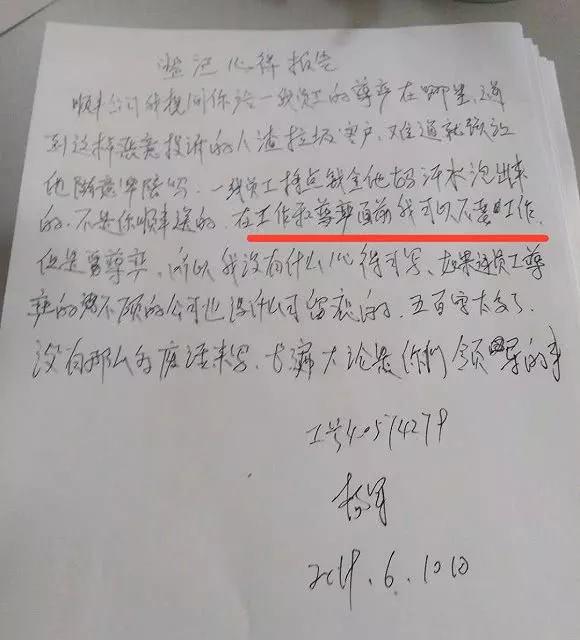 登记心得报告
顺丰公司我想问你给一线员工的尊严在哪里,遇
到这样恶意投诉的人渣垃圾客户,难道就放让
他随意牢骚吗,一线员工挣点钱全他妈汗水泡出来
的,不是你顺丰送的,在工作和尊严面前我可以不要工作,
但是要尊严,所以我没有什么心得可写、如果连员工尊
严的都不顾的公司也没什么可留恋的,五百字太多了,
没有那么多废话来写,长篇大论是你们领导的事
工号40574279
6.10